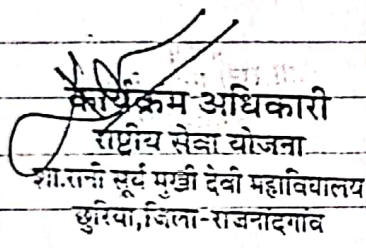 कार्यक्रम अधिकारी
राष्ट्रीय सेवा योजना
शा.रानी सूर्य मुखी देवी महाविद्यालय
छुरिया,जिला-राजनांदगांव